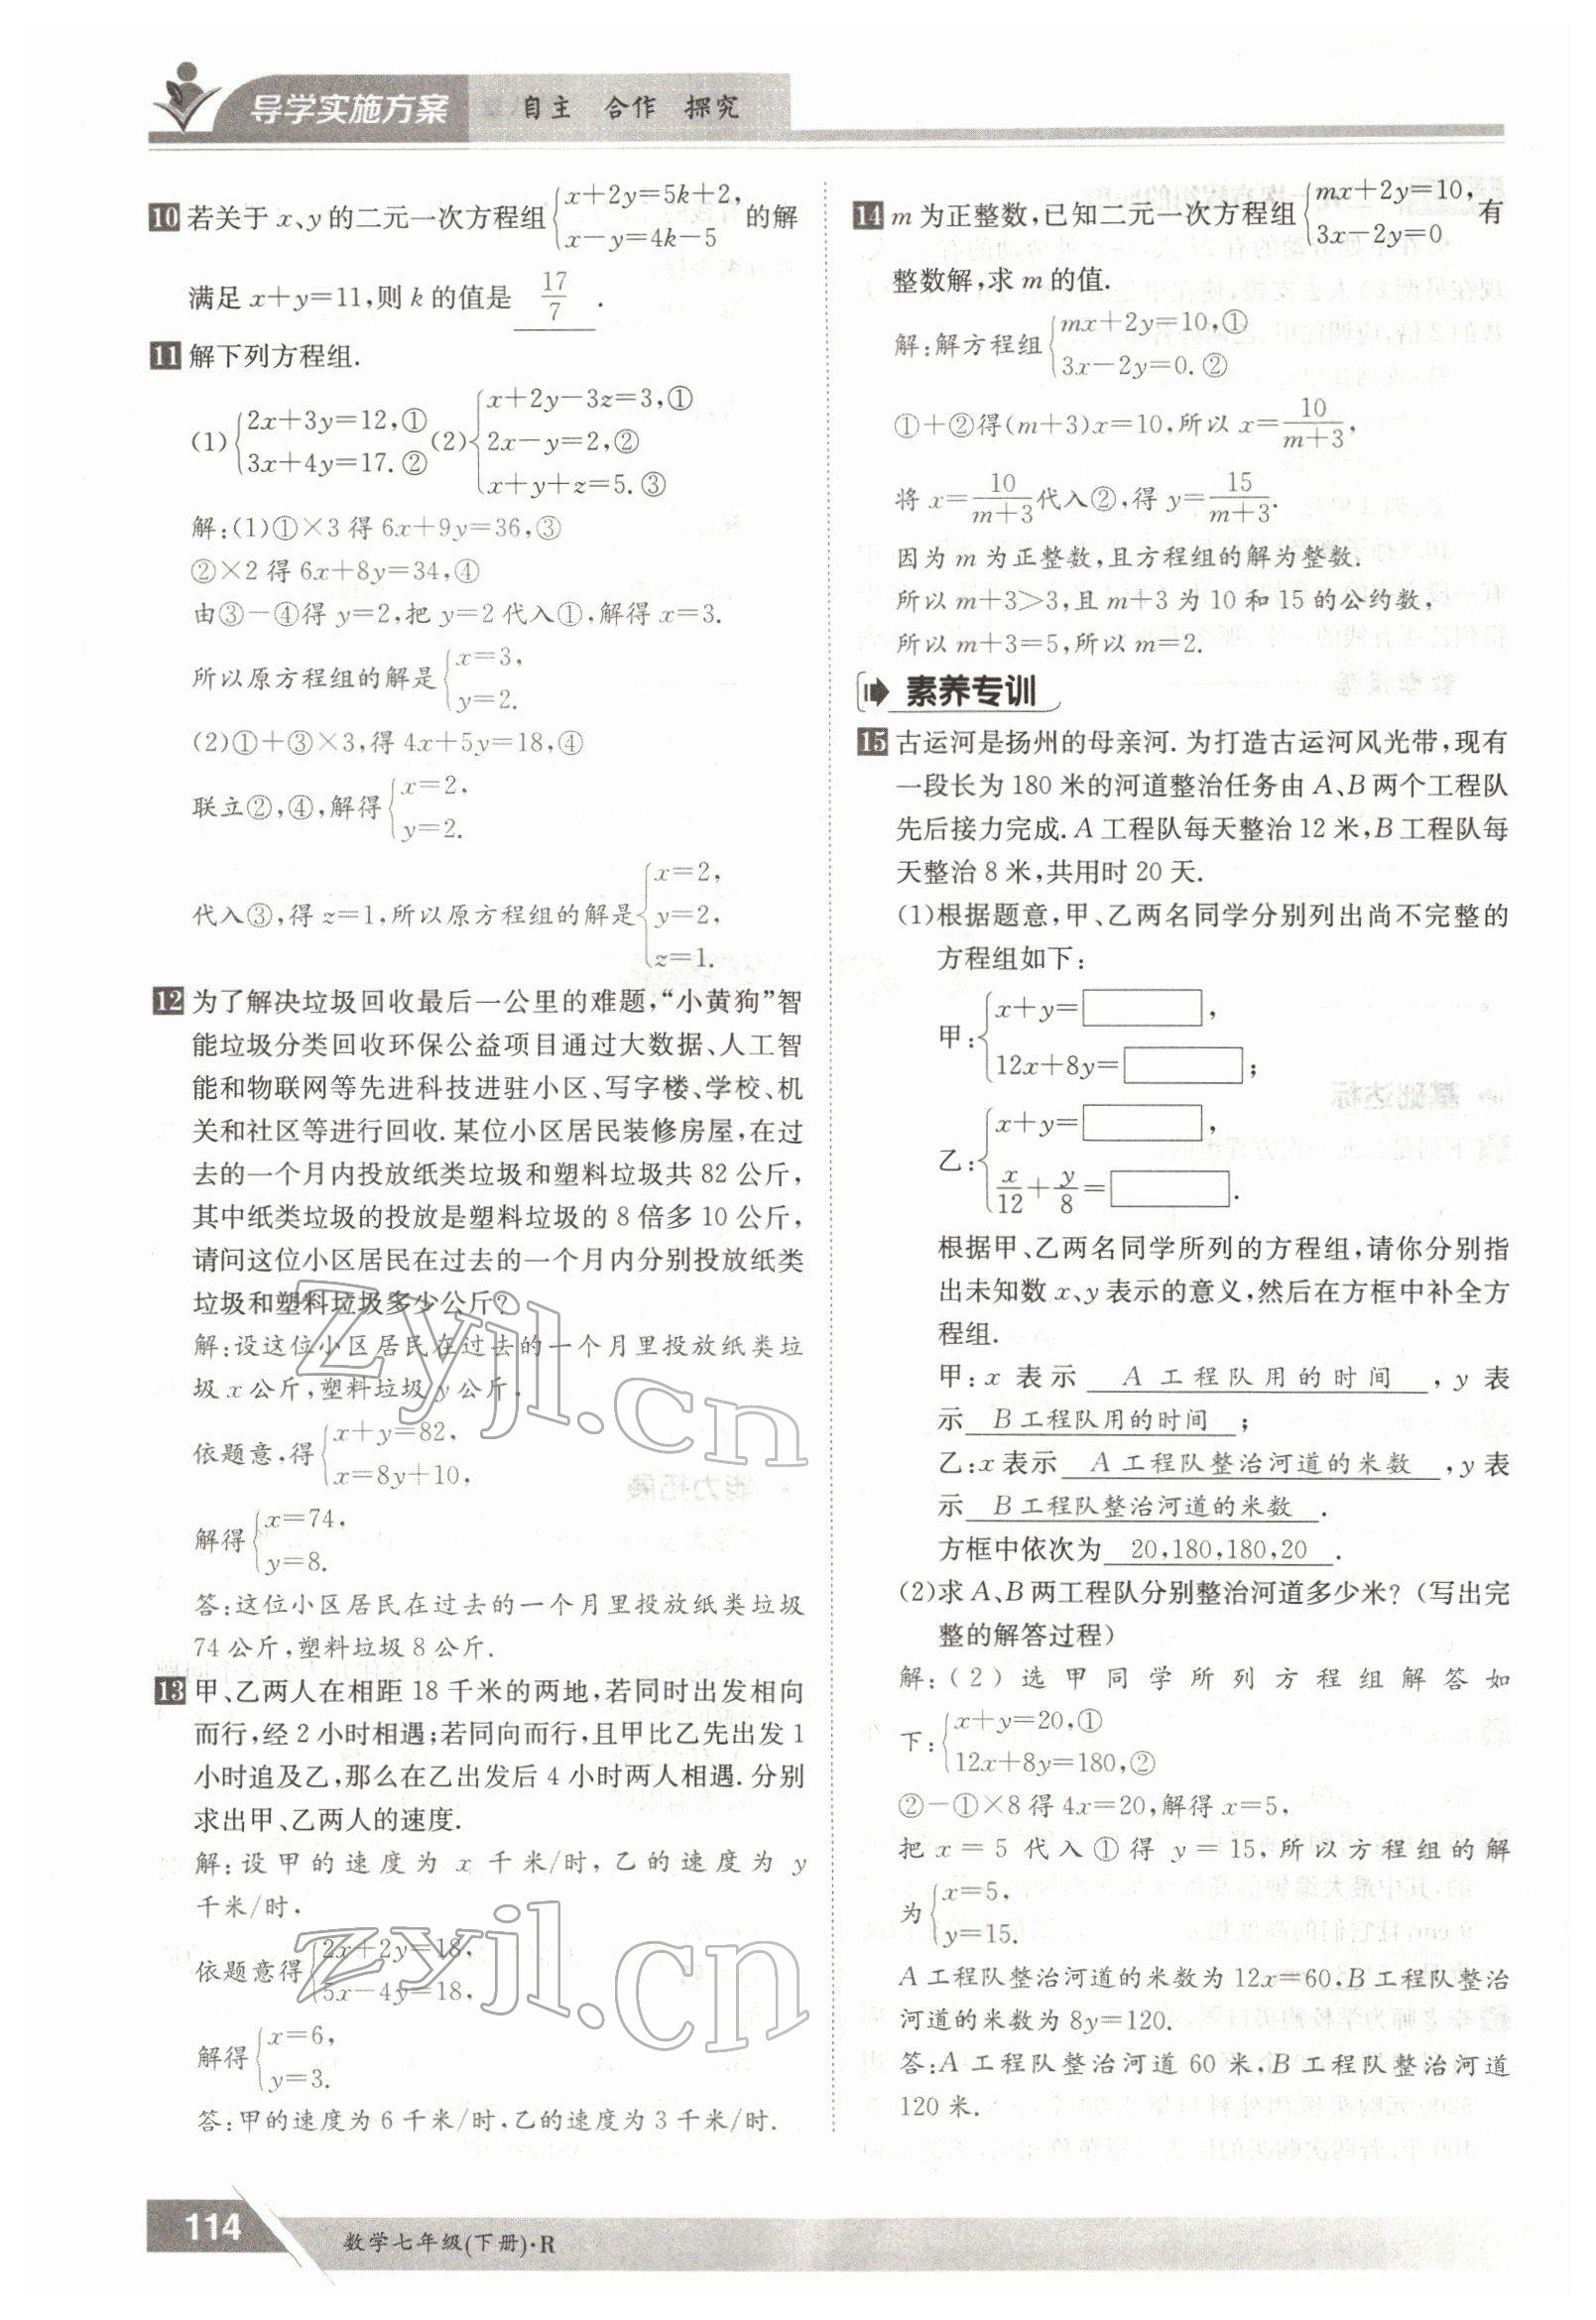 导学实施方案
自主 合作 探究
10 若关于 x、y 的二元一次方程组{x+2y=5k+2, x-y=4k-5 的解
满足 x+y=11,则 k 的值是 17/7 .
11 解下列方程组.
(1){2x+3y=12,① 3x+4y=17.② (2){x+2y-3z=3,① 2x-y=2,② x+y+z=5.③
解:(1)①×3 得 6x+9y=36,③
②×2 得 6x+8y=34,④
由③-④得 y=2,把 y=2 代入①,解得 x=3.
所以原方程组的解是{x=3, y=2.
(2)①+③×3,得 4x+5y=18,④
联立②,④,解得{x=2, y=2.
代入③,得 z=1,所以原方程组的解是{x=2, y=2, z=1.
12 为了解决垃圾回收最后一公里的难题,“小黄狗”智
能垃圾分类回收环保公益项目通过大数据、人工智
能和物联网等先进科技进驻小区、写字楼、学校、机
关和社区等进行回收.某位小区居民装修房屋,在过
去的一个月内投放纸类垃圾和塑料垃圾共 82 公斤,
其中纸类垃圾的投放是塑料垃圾的 8 倍多 10 公斤,
请问这位小区居民在过去的一个月内分别投放纸类
垃圾和塑料垃圾多少公斤?
解:设这位小区居民在过去的一个月里投放纸类垃
圾 x 公斤,塑料垃圾 y 公斤,
依题意,得{x+y=82, x=8y+10,
解得{x=74, y=8.
答:这位小区居民在过去的一个月里投放纸类垃圾
74 公斤,塑料垃圾 8 公斤.
13 甲、乙两人在相距 18 千米的两地,若同时出发相向
而行,经 2 小时相遇;若同向而行,且甲比乙先出发 1
小时追及乙,那么在乙出发后 4 小时两人相遇.分别
求出甲、乙两人的速度.
解:设甲的速度为 x 千米/时,乙的速度为 y
千米/时.
依题意得{2x+2y=18, 5x-4y=18,
解得{x=6, y=3.
答:甲的速度为 6 千米/时,乙的速度为 3 千米/时.
14 m 为正整数,已知二元一次方程组{mx+2y=10, 3x-2y=0 有
整数解,求 m 的值.
解:解方程组{mx+2y=10,① 3x-2y=0.②
①+②得(m+3)x=10,所以 x=10/(m+3),
将 x=10/(m+3)代入②,得 y=15/(m+3).
因为 m 为正整数,且方程组的解为整数.
所以 m+3>3,且 m+3 为 10 和 15 的公约数,
所以 m+3=5,所以 m=2.
素养专训
15 古运河是扬州的母亲河.为打造古运河风光带,现有
一段长为 180 米的河道整治任务由 A、B 两个工程队
先后接力完成.A 工程队每天整治 12 米,B 工程队每
天整治 8 米,共用时 20 天.
(1)根据题意,甲、乙两名同学分别列出尚不完整的
方程组如下:
甲:{x+y=□, 12x+8y=□;
乙:{x+y=□, x/12+y/8=□.
根据甲、乙两名同学所列的方程组,请你分别指
出未知数 x、y 表示的意义,然后在方框中补全方
程组.
甲:x 表示 A 工程队用的时间 ,y 表
示 B 工程队用的时间 ;
乙:x 表示 A 工程队整治河道的米数 ,y 表
示 B 工程队整治河道的米数 .
方框中依次为 20,180,180,20 .
(2)求 A、B 两工程队分别整治河道多少米?(写出完
整的解答过程)
解:(2)选甲同学所列方程组解答如
下:{x+y=20,① 12x+8y=180,②
②-①×8 得 4x=20,解得 x=5,
把 x=5 代入①得 y=15,所以方程组的解
为{x=5, y=15.
A 工程队整治河道的米数为 12x=60,B 工程队整治
河道的米数为 8y=120.
答:A 工程队整治河道 60 米,B 工程队整治河道
120 米.
zyjl.cn
zyjl.cn
114
数学七年级(下册)·R